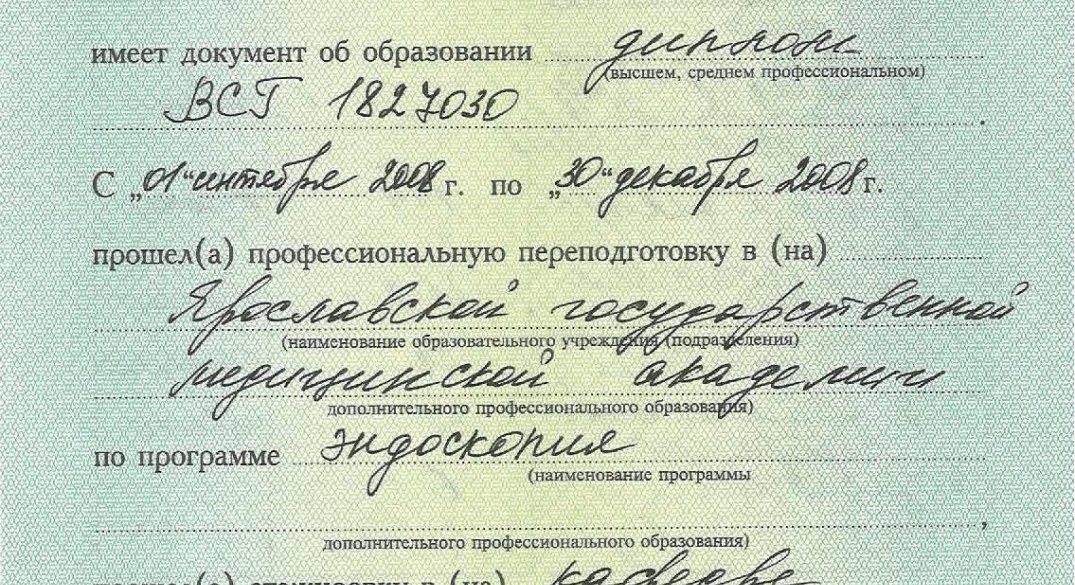 имеет документ об образовании диплом
(высшем, среднем профессиональном)
ВСГ 1827030.
С „01“ сентября 2008 г. по „30“ декабря 2008 г.
прошел(а) профессиональную переподготовку в (на)
Ярославской государственной
(наименование образовательного учреждения (подразделения)
медицинской академии
дополнительного профессионального образования)
по программе эндоскопия
(наименование программы
,
дополнительного профессионального образования)
прошел(а) стажировку в (на) кафедре